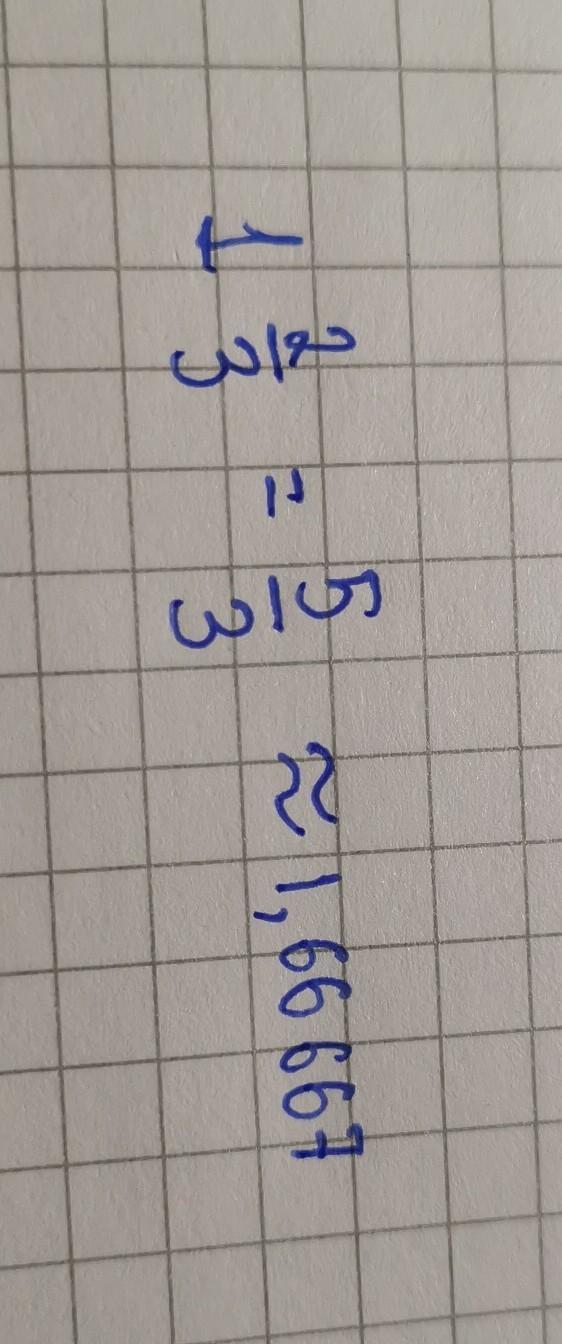 1 2/3 = 5/3 ≈ 1,66667